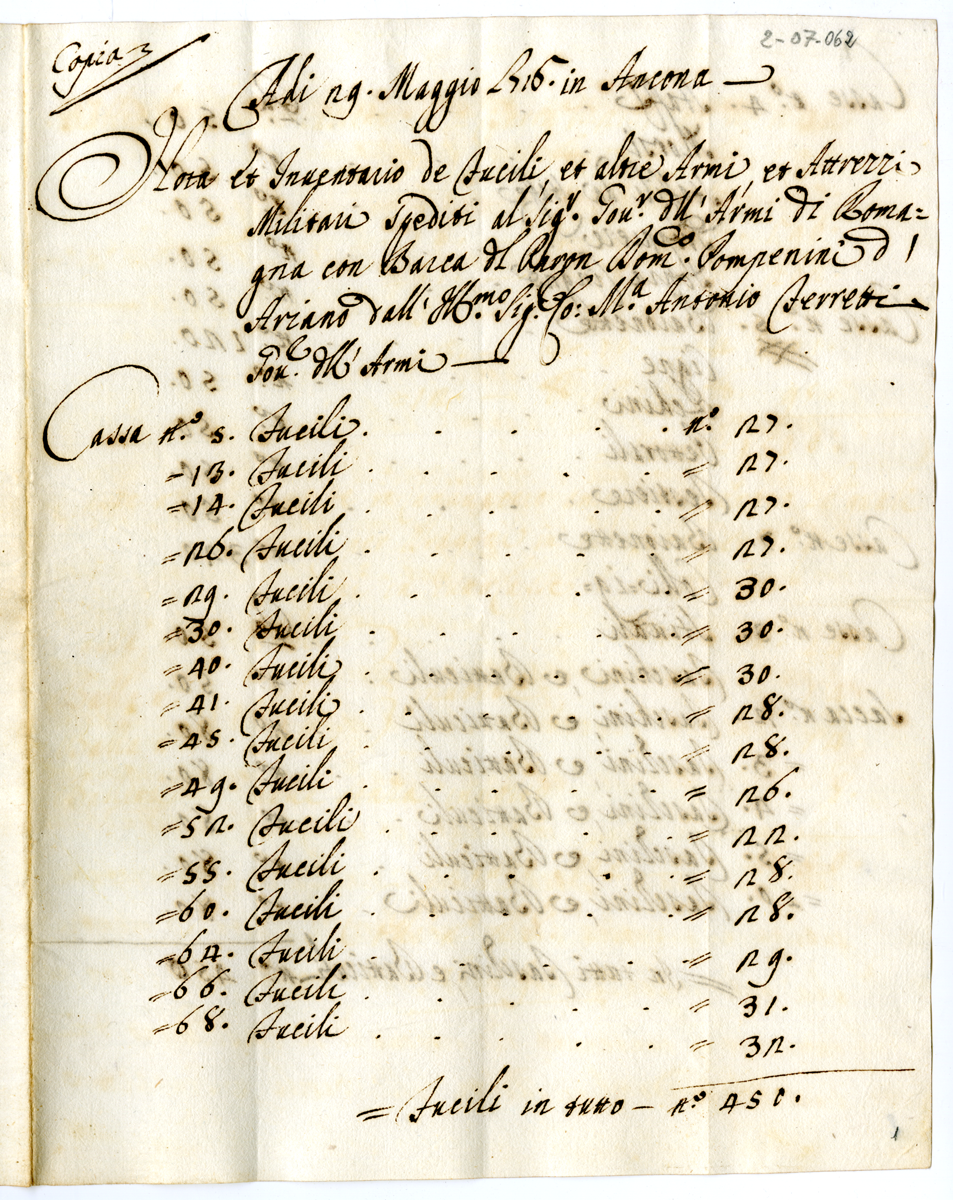 Copia
2-07-062
Adi 29. Maggio 1716. in Ancona —
Nota et Inventario de Fucili, et altre Armi, et Attrezzi
Militari Spediti al Sigr. Gour. dll' Armi di Roma=
gna con Barca dl Pnron Domco. Pompenini d'
Ariano dall' Illmo. Sig. Co: Ma. Antonio Ferretti
Gour. dll' Armi —
Cassa n.o 5. Fucili . . . . . n.o 27.
=13. Fucili . . . . . = 27.
=14. Fucili . . . . . = 27.
=26. Fucili . . . . . = 27.
=29. Fucili . . . . . = 30.
=30. Fucili . . . . . = 30.
=40. Fucili . . . . . = 30.
=41. Fucili . . . . . = 28.
=45. Fucili . . . . . = 28.
=49. Fucili . . . . . = 26.
=52. Fucili . . . . . = 22.
=55. Fucili . . . . . = 28.
=60. Fucili . . . . . = 28.
=64. Fucili . . . . . = 29.
=66. Fucili . . . . . = 31.
=68. Fucili . . . . . = 32.
= Fucili in tutto — n.o 450.
1